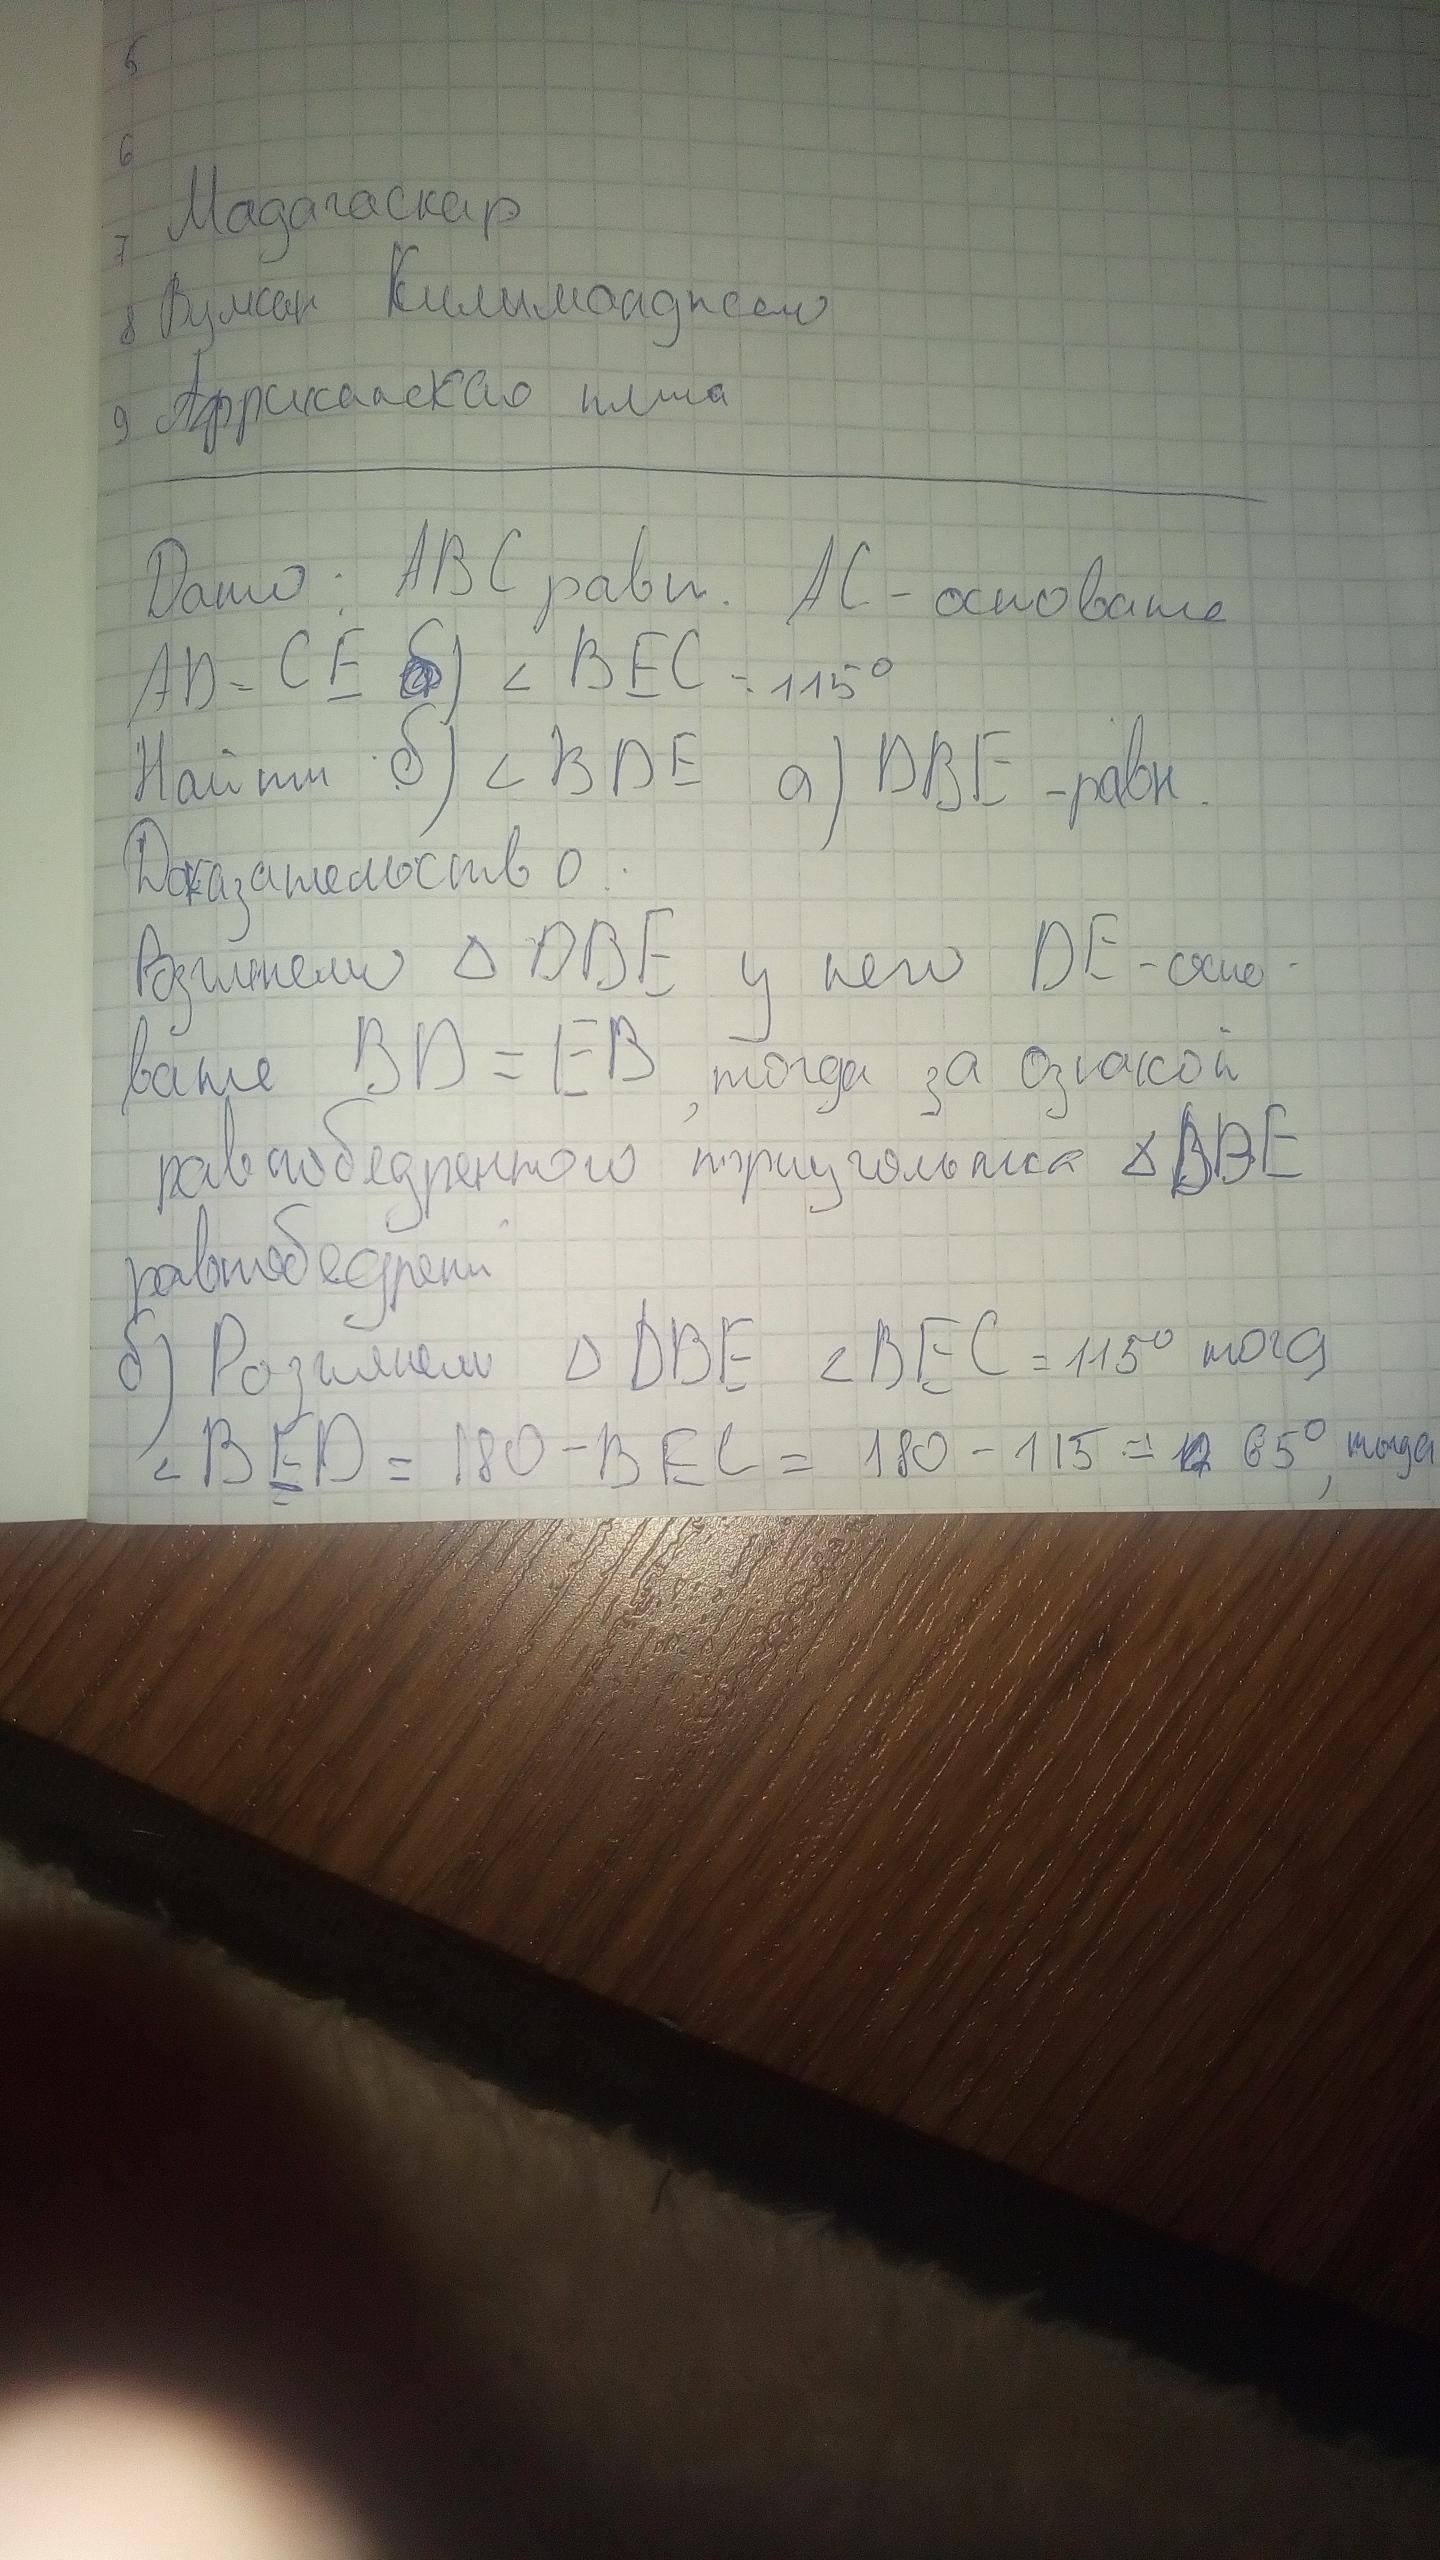 5
6
7 Мадагаскар
8 Вулкан Килиманджаро
9 Африканская плита
Дано: ABC равн. AC - основание
AD = CE б) < BEC = 115°
Найти б) < BDE а) DBE - равн.
Доказательство:
Розглянем △ DBE у него DE - осно-
вание BD = EB, тогда за ознакой
равнобедренного триугольника △ DBE
равнобедрени
б) Розглянем △ DBE < BEC = 115° тогд
< BED = 180 - BEC = 180 - 115 = 65°, тогда